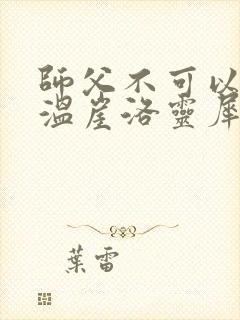 師父不可以
溫崖洛靈犀
葉雷